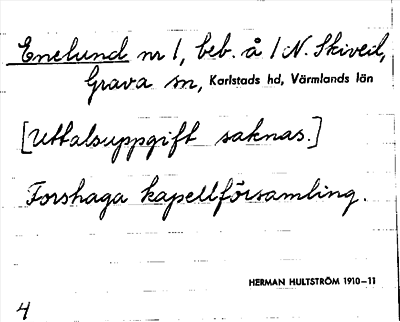 Enelund nr 1, beb. å 1 N. Skived,
Grava sn, Karlstads hd, Värmlands län
[Uttalsuppgift saknas.]
Forshaga kapellförsamling.
HERMAN HULTSTRÖM 1910–11
4